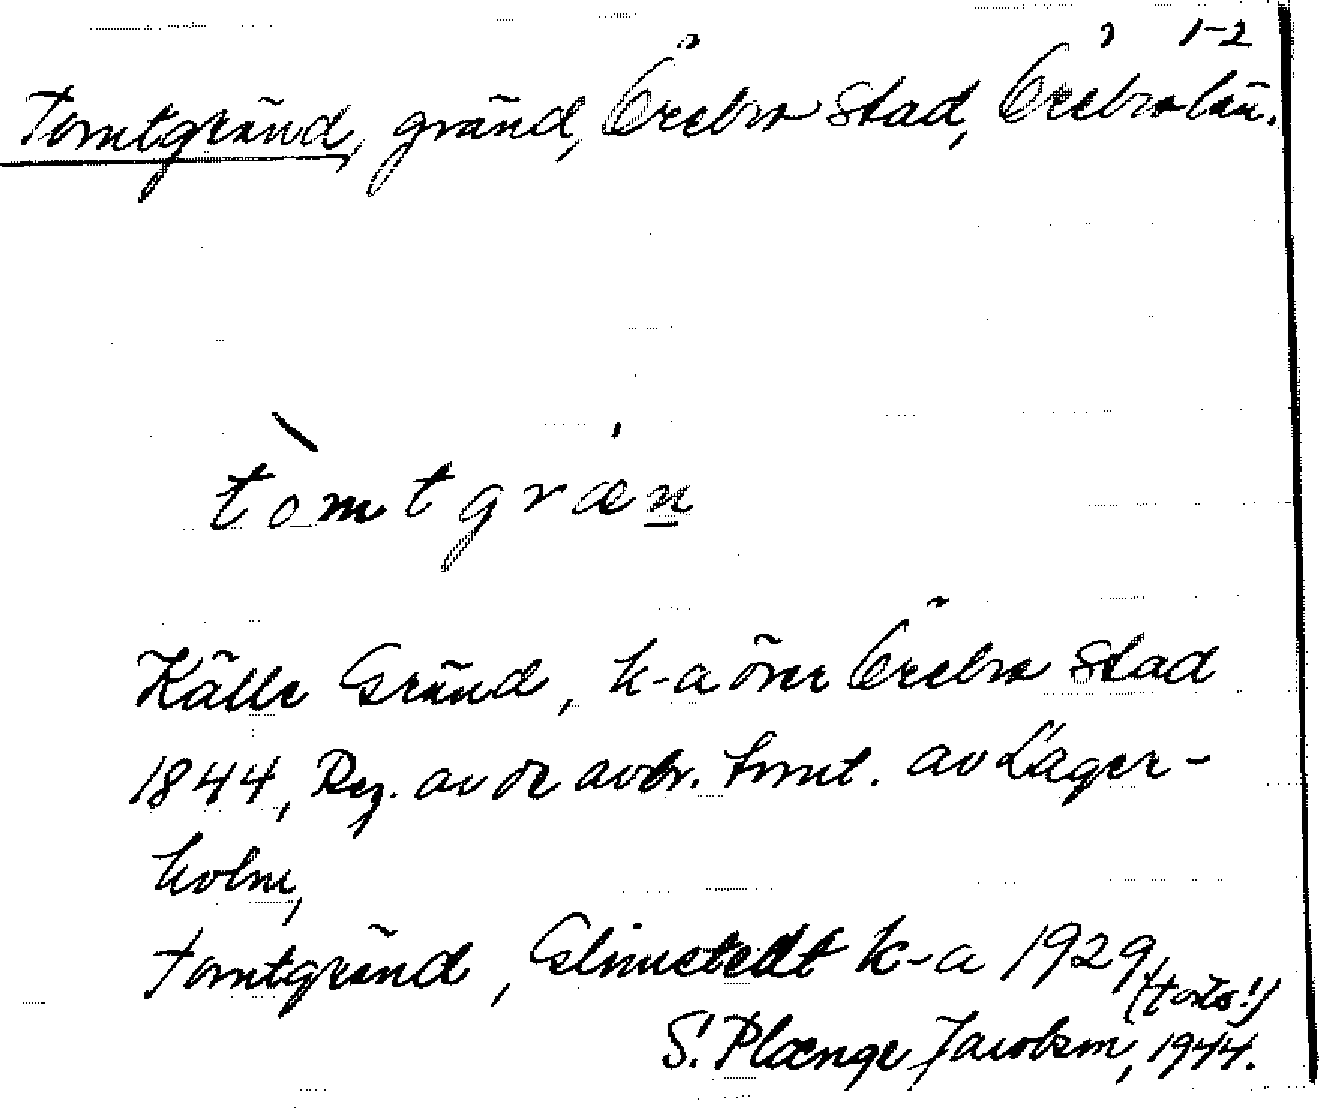 1-2
Tomtgränd, gränd, Örebro stad, Örebro län.
tòmtgræn
Källe Gränd, k-a över Örebro stad
1844, av Lager-
holm,
Tomtgränd, k-a 1929 (forts!)
S. Plænge Jacobson, 1944.